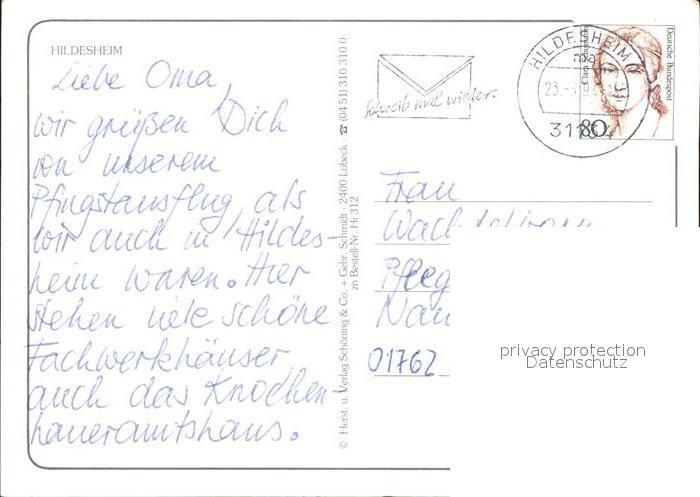 HILDESHEIM
Liebe Oma,
wir grüßen Dich
von unserem
Pfingstausflug, als
wir auch in Hildes-
heim waren. Hier
stehen viele schöne
Fachwerkhäuser,
auch das Knochen-
haueramtshaus.
© Herst. u. Verlag Schöning & Co. + Gebr. Schmidt · 2400 Lübeck · ☎ (04 51) 310 310 0
zn Bestell-Nr. Hi 312
Schreib mal wieder.
HILDESHEIM
23.
311
Deutsche Bundespost
80
Frau
Pfleg
01762
privacy protection
Datenschutz